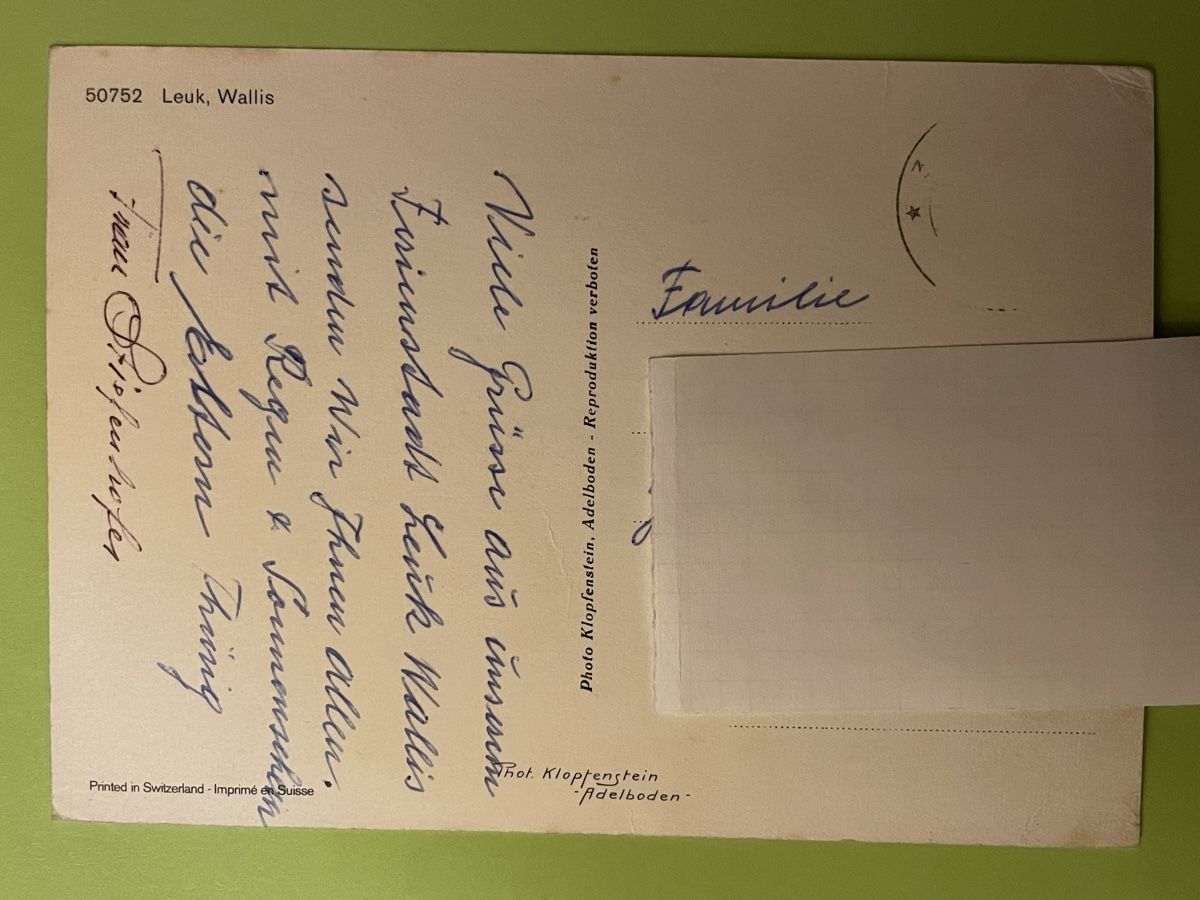 50752 Leuk, Wallis
Viele Grüsse aus unserem
Ferienstadt Leuk Wallis
senden Wir Ihnen Allen.
mit Regen & Sonnenschein
die Eltern Thüng
Frau Diefenhofer
Photo Klopfenstein, Adelboden - Reproduktion verboten
Familie
Phot. Klopfenstein
- Adelboden -
Printed in Switzerland - Imprimé en Suisse